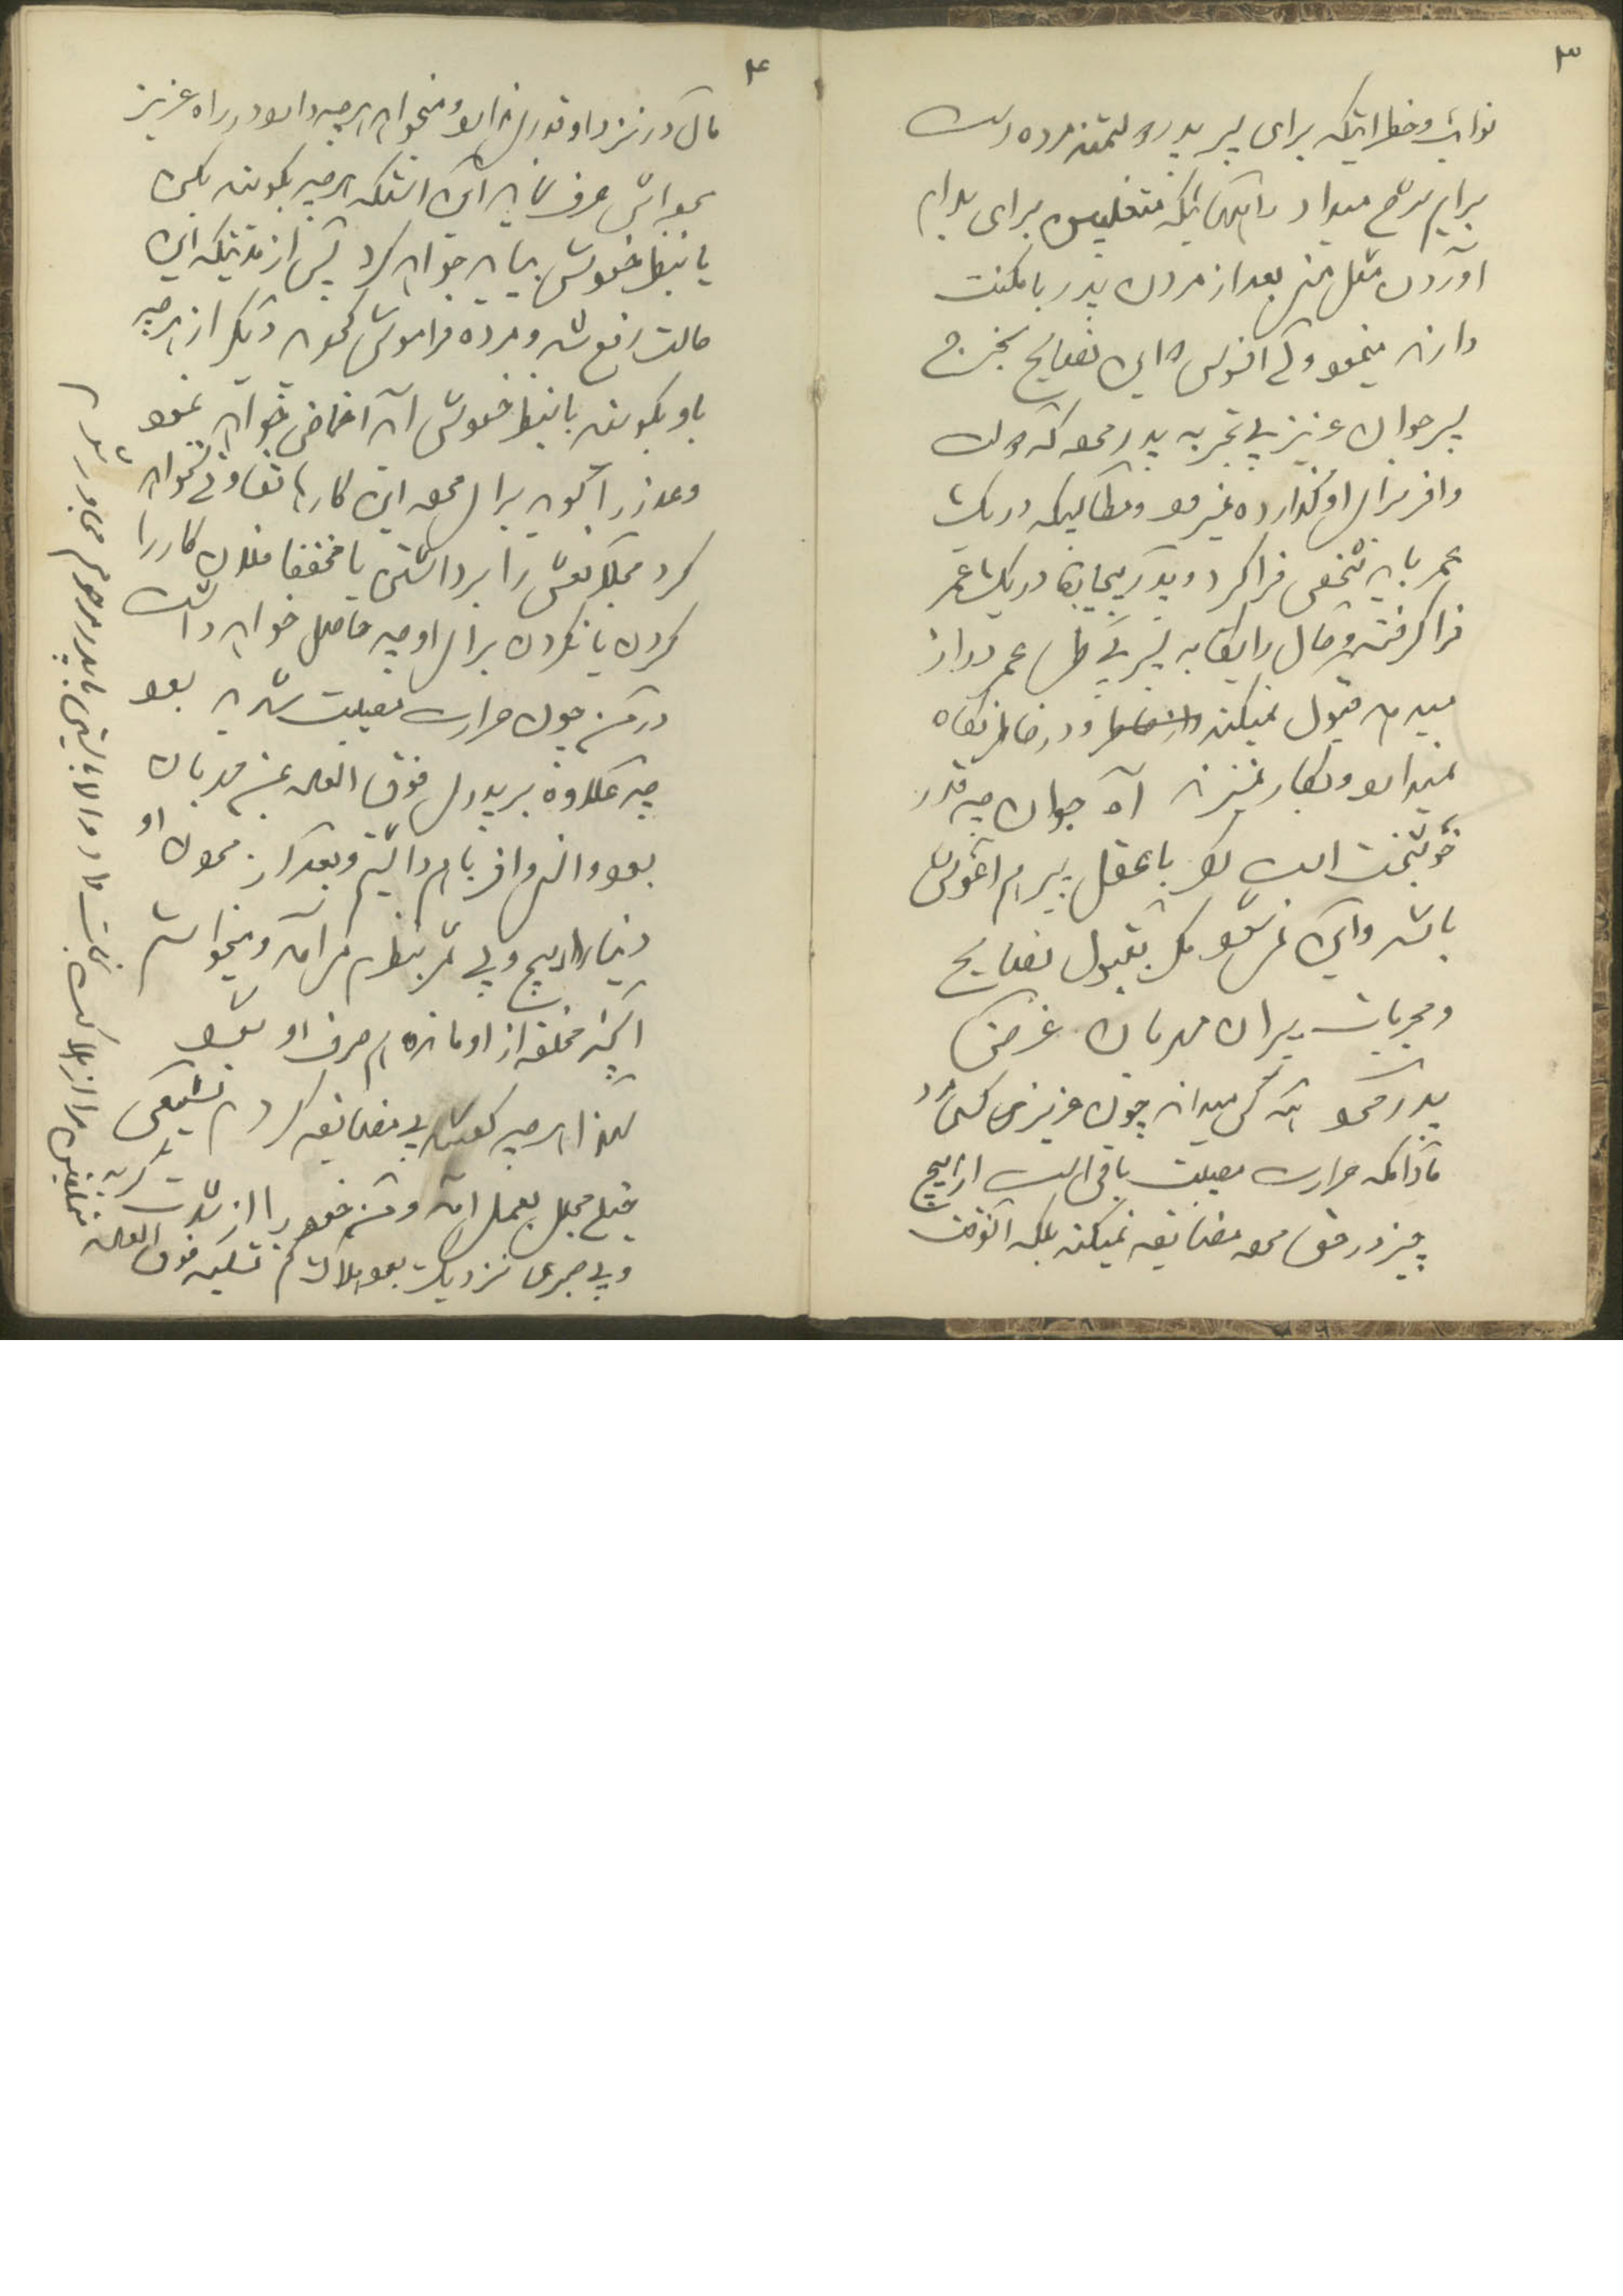 ۳
نوائب و خطراتیکه برای پسر پدر متمند مرده است
برایم شرح میداد و امتحاناتیکه متقلبین برای بدام
آوردن مثل من بعد از مردن پدر با مکنت
دارند مینمود ولی افسوس که این نصایح بخرج
پسر جوان عزیز بی تجربه پدر مرده که دولت
وافر برای او گذارده نمیرود و مطالبیکه در یک
عمر باید شخصی فرا گرد و پدر بیچاره در یک عمر
فرا گرفته و حال رایگان به پسر بی طی عمر دراز
میدهد قبول نمیکند و در خاطر نگاه
نمیدارد و بکار نمیزند آه جوان چه قدر
خوشبخت است که با عقل پیر هم آغوش
باشد و این نمیشود مگر بقبول نصایح
و مجربات پیران مهربان غرض
پدر مرده که میداند چون عزیزی کسی مرد
مادامکه حرارت مصیبت باقی است از هیچ
چیز در حق مرده مضایقه نمیکند بلکه آنوقت
۴
مال در نزد او قدری ندارد و میخواهد هرچه دارد در راه عزیز
خودش صرف نماید این است که هرچه بگویند بکن
یا بنظر خودش بیاید خواهد کرد پس از مدتیکه این
حالت رفع شد و مرده فراموش گردید دیگر از هرچه
باو بگویند یا بنظر خودش آید اغماض خواهد نمود
و عذر را گوید برای مرده این کارها تفاوتی نخواهد
کرد مجللا نعش را برداشتن یا مخففا فلان کار را
کردن یا نکردن برای او چه حاصل خواهد داشت
در من چون حرارت مصیبت شدید بود
چه علاوه بر پدری فوق العاده بمن مهربان
بود و انس وافر با هم داشتیم و بعد از مردن او
دنیا را هیچ و بی ثمر بنظرم می آمد و میخواستم
آنچه مخلفه از او مانده هم صرف او شود
لهذا هرچه گفتند بی مضایقه کردم تشییعی
خیلی مجلل بعمل آمد و من خود را از شدت گریه
و بی صبری نزدیک بود هلاک کنم تسلیه فوق العاده متقلبین
مرا از هلاکت نجات داد والا بایستی با پدر مرحوم مجاور شدم